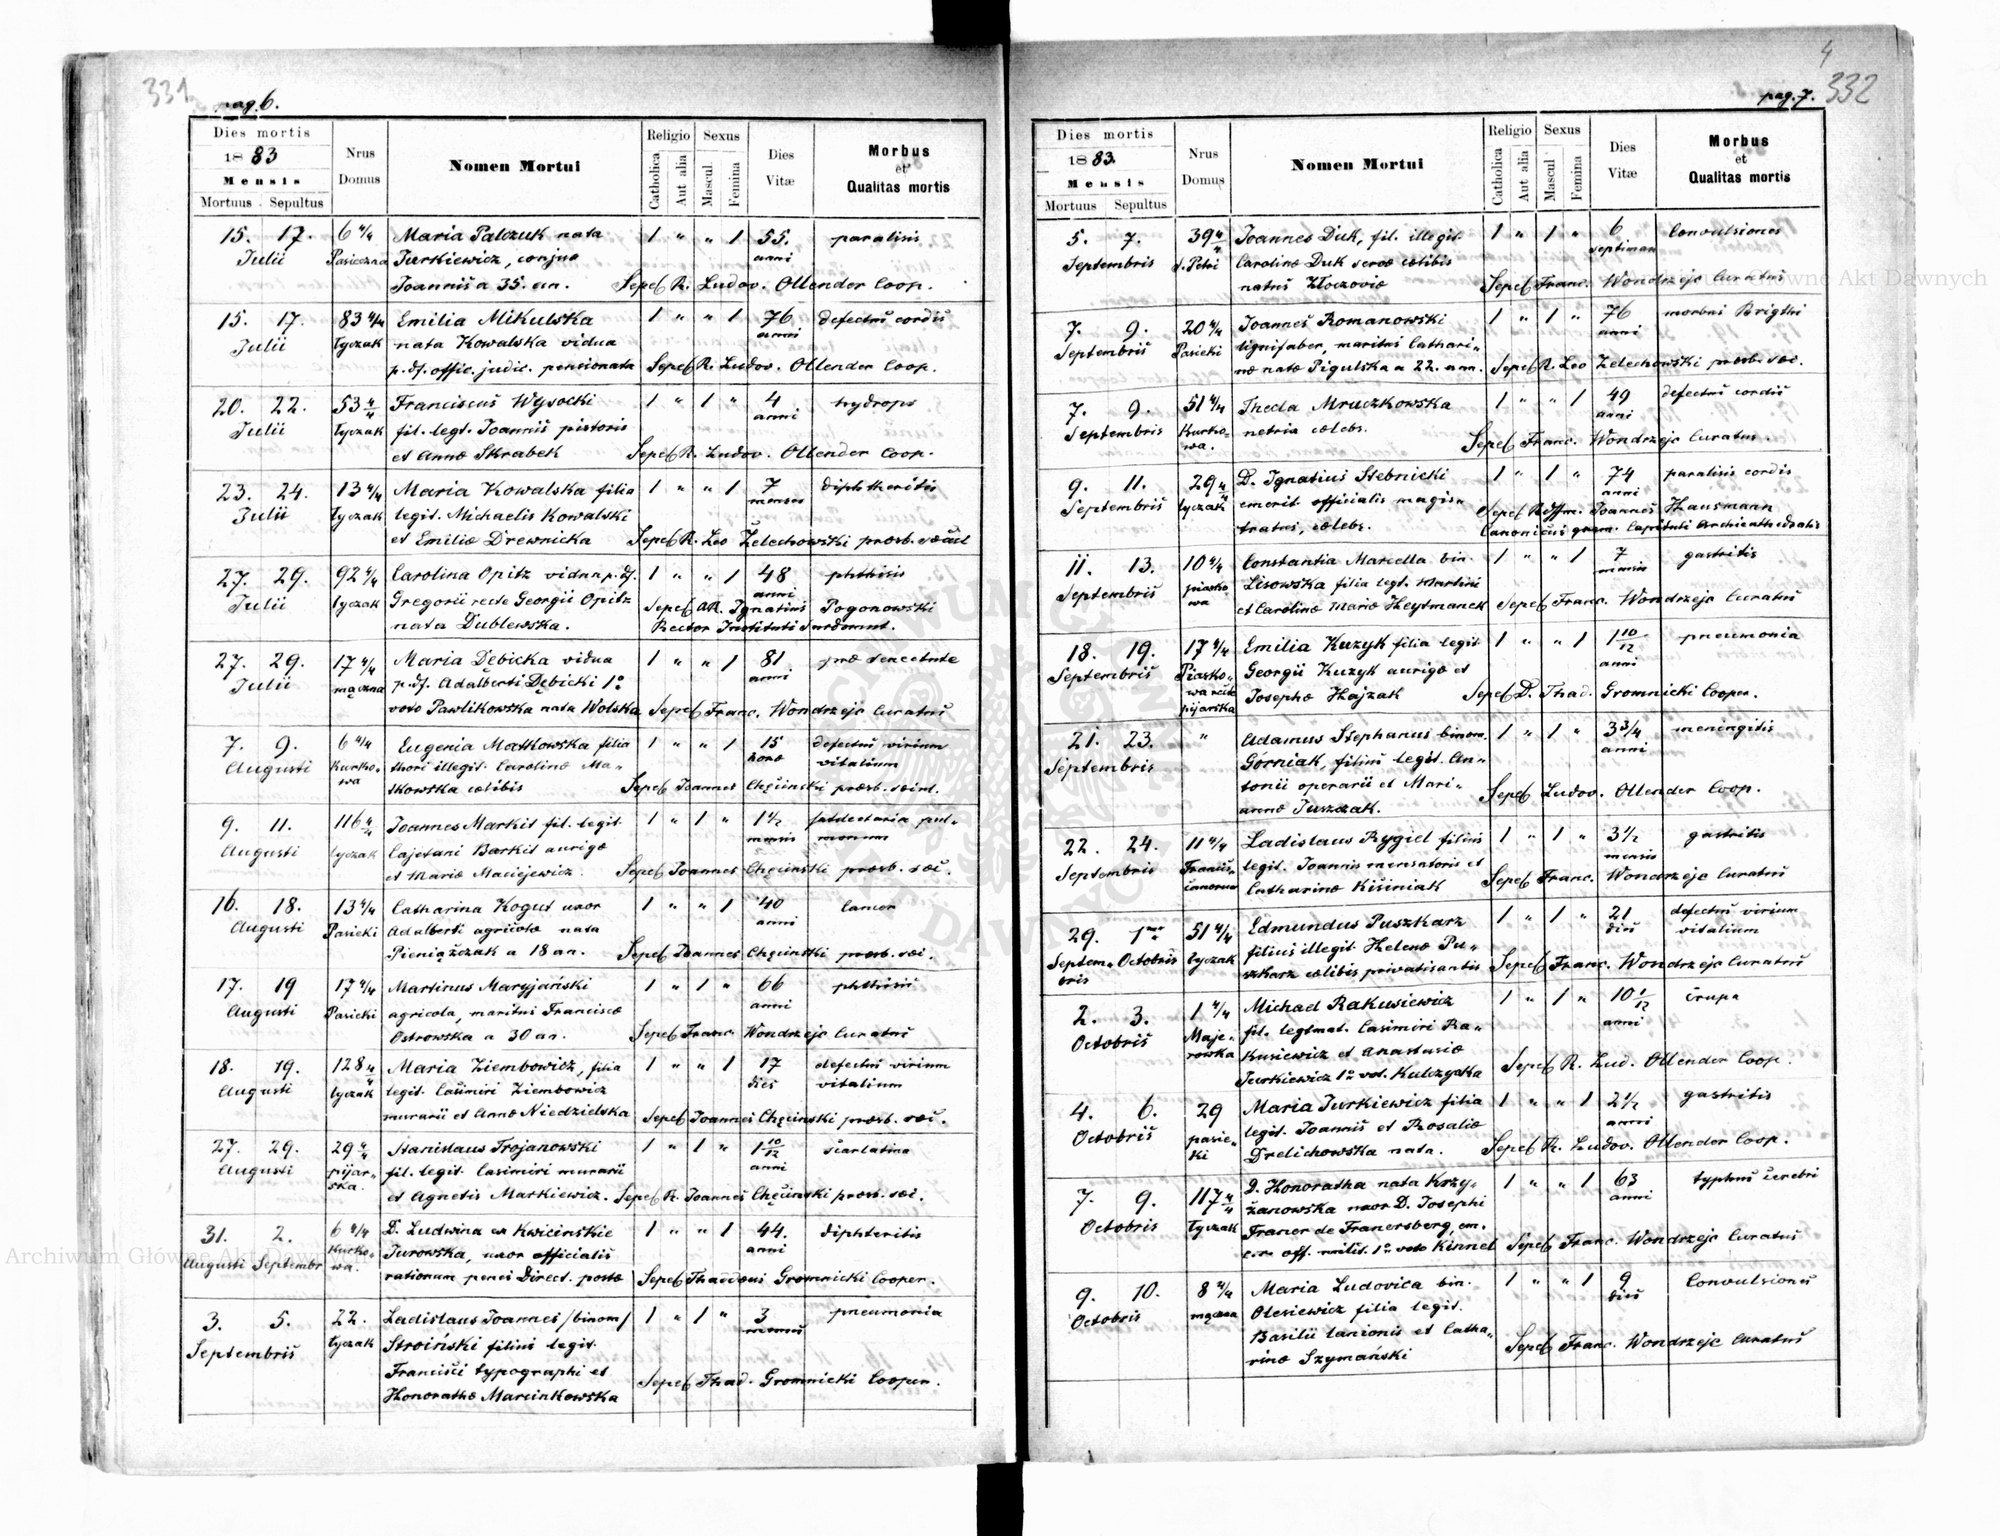 331.
pag. 6.
Dies mortis
1883
Mensis
Mortuus Sepultus
Nrus Domus
Nomen Mortui
Religio
Catholica
Aut alia
Sexus
Mascul.
Femina
Dies Vitæ
Morbus et Qualitas mortis
15. 17. 6 4/4 Maria Palczuk nata 1 " " 1 55. paralisis
Julii Pasieczna Jurkiewicz, conjux anni
Joannis a 35. an. Sepel R. Ludov. Ollender Coop.
15. 17. 83 4/4 Emilia Mikulska 1 " " 1 76 defectus cordis
Julii Łyczak nata Kowalska vidua anni
p. df. offic. judic. pensionata Sepel R. Ludov. Ollender Coop.
20. 22. 53 4/4 Franciscus Wysocki 1 " 1 " 4 hydrops
Julii Łyczak fil. legt. Joannis pistoris anni
et Annæ Skrabek Sepel R. Ludov. Ollender Coop.
23. 24. 13 4/4 Maria Kowalska filia 1 " " 1 7 diphtheritis
Julii Łyczak legit. Michaelis Kowalski menses
et Emiliæ Drewnicka Sepel R. Leo Żelechowski præsb. sæcul
27. 29. 92 4/4 Carolina Opitz vidua p. df. 1 " " 1 48 phthisis
Julii Łyczak Gregorii recte Georgii Opitz anni
nata Dublewska. Sepel AR. Ignatius Pogonowski
Rector Instituti Surdomut.
27. 29. 17 4/4 Maria Dębicka vidua 1 " " 1 81. præ senectute
Julii mączna p. df. Adalberti Dębicki 1º anni
voto Pawlikowska nata Wolska Sepel Franc. Wondrzejc Curatus
7. 9. 6 4/4 Eugenia Matkowska filia 1 " " 1 15 defectus virium
Augusti Kurkowa thori illegit. Carolinæ Ma- horæ vitalium
tkowska cælibis Sepel Joannes Chęcinski præsb. sæcul.
9. 11. 116 4/4 Joannes Markit fil. legit. 1 " 1 " 1 1/2 pul-
Augusti Łyczak Cajetani Barkit aurigæ mensis monum
et Mariæ Maciejewicz. Sepel Joannes Chęcinski præsb. sæc.
16. 18. 13 4/4 Catharina Kogut uxor 1 " " 1 40 Cancer
Augusti Pasieki Adalberti agricolæ nata anni
Pieniążczak a 18 an. Sepel Joannes Chęcinski præsb. sæc.
17. 19 17 4/4 Martinus Maryjański 1 " 1 " 66 phthisis
Augusti Pasieki agricola, maritus Franciscæ anni
Ostrowska a 30 an. Sepel Franc. Wondrzejc Curatus
18. 19. 128 4/4 Maria Ziembowicz, filia 1 " " 1 17 defectus virium
Augusti Łyczak legit. Casimiri Ziembowicz dies vitalium
murarii et Annæ Niedzielska Sepel Joannes Chęcinski præsb. sæc.
27. 29. 29 4/4 Stanislaus Trojanowski 1 " 1 " 1 10/12 scarlatina
Augusti pijarska. fil. legit. Casimiri murarii anni
et Agnetis Markiewicz. Sepel R. Joannes Chęcinski præsb. sæc.
31. 2. 6 4/4 D. Ludwina ex Kwicinskie 1 " " 1 44. diphteritis
Augusti Septembr Kurkowa. Jurowska, uxor officialis anni
rationum penes Direct. postæ Sepel Thaddæus Gromnicki Cooper.
3. 5. 22. Ladislaus Joannes /binom/ 1 " 1 " 3 pneumonia
Septembris Łyczak Stroiński filius legit. menses
Francisci typographi et
Honorathæ Marcinkowska Sepel Thad. Gromnicki Cooper.
4
332
pag. 7.
Dies mortis
1883.
Mensis
Mortuus Sepultus
Nrus Domus
Nomen Mortui
Religio
Catholica
Aut alia
Sexus
Mascul
Femina
Dies Vitæ
Morbus et Qualitas mortis
5. 7. 39 4/4 Joannes Duk, fil. illegit. 1 " 1 " 6 Convulsiones
Septembris s. Petri Carolinæ Duk servæ cælibis septiman
natus Złoczoviæ Sepel Franc. Wondrzejc Curatus
7. 9. 20 4/4 Joannes Romanowski 1 " 1 " 76 morbus Brigthi
Septembris Pasieki lignifaber, maritus Cathari- anni
næ natæ Pigulska a 22. ann. Sepel R. Leo Zelechowski præsb. sæc.
7. 9. 51 4/4 Thecla Mruczkowska 1 " " 1 49 defectus cordis
Septembris Kurkowa. netria cælebs. anni
Sepel Franc. Wondrzejc Curatus.
9. 11. 29 4/4 D. Ignatius Stebnicki 1 " 1 " 74 paralisis cordis
Septembris Łyczak emerit. officialis magis- anni
tratus, cælebs. Sepel Rdssm. Joannes Hausmann
Canonicus grem. Capituli Archicathedralis
11. 13. 10 4/4 Constantia Marcella bin. 1 " " 1 7 gastritis
Septembris piaskowa Lisowska filia legt. Martini mensis
et Carolinæ Mariæ Heytmanek Sepel Franc. Wondrzejc Curatus
18. 19. 17 4/4 Emilia Kuzyk filia legit 1 " " 1 1 10/12 pneumonia
Septembris Piaskowa recte pijarska Georgii Kuzyk aurigæ et anni
Josephæ Hajzak Sepel D. Thad. Gromnicki Cooper.
21. 23. " Adamus Stephanus binom. 1 " 1 " 3 3/4 meningitis
Septembris Górniak, filius legit. An- anni
tonii operarii et Mari-
annæ Juszczak. Sepel Ludov. Ollender Coop.
22. 24. 11 4/4 Ladislaus Rygiel filius 1 " 1 " 3 1/2 gastritis
Septembris Franciscanorum legit. Joannis mensatoris et mensis
Catharinæ Kisiniak Sepel Franc. Wondrzejc Curatus
29. 1ma 51 4/4 Edmundus Puszkarz 1 " 1 " 21 defectus virium
Septembris Octobris Łyczak filius illegit. Helenæ Pu- dies vitalium
szkarz cælibis privatisantis Sepel Franc. Wondrzejc Curatus
2. 3. 1 4/4 Michael Rakusiewicz 1 " 1 " 10 1/12 crupa
Octobris Majerowka fil. legtmat. Casimiri Ra- anni
kusiewicz et Anastasiæ
Jurkiewicz 1º vot. Kulczycka Sepel R. Lud. Ollender Coop.
4. 6. 29 Maria Jurkiewicz filia 1 " " 1 2 1/2 gastritis
Octobris pasieki legit. Joannis et Rosaliæ anni
Drelichowska nata. Sepel R. Ludov. Ollender Coop.
7. 9. 117 4/4 D. Honoratha nata Krzy- 1 " " 1 63 typhus cerebri
Octobris Łyczak żanowska uxor D. Josephi anni
Franer de Franersberg, em.
off. milit. 1º voto Kinnel Sepel Franc. Wondrzejc Curatus
9. 10. 8 4/4 Maria Ludovica bin. 1 " " 1 9 Convulsiones
Octobris mączna Olesiewicz filia legit. dies
Basilii lanionis et Catha-
rinæ Szymański Sepel Franc. Wondrzejc Curatus
Archiwum Główne Akt Dawnych